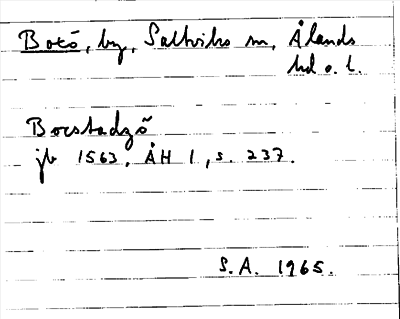 Botö, by, Saltviks sn, Ålands
hd o. l.
Borstadzö
jb 1563. ÅH 1, s. 237.
S.A. 1965.